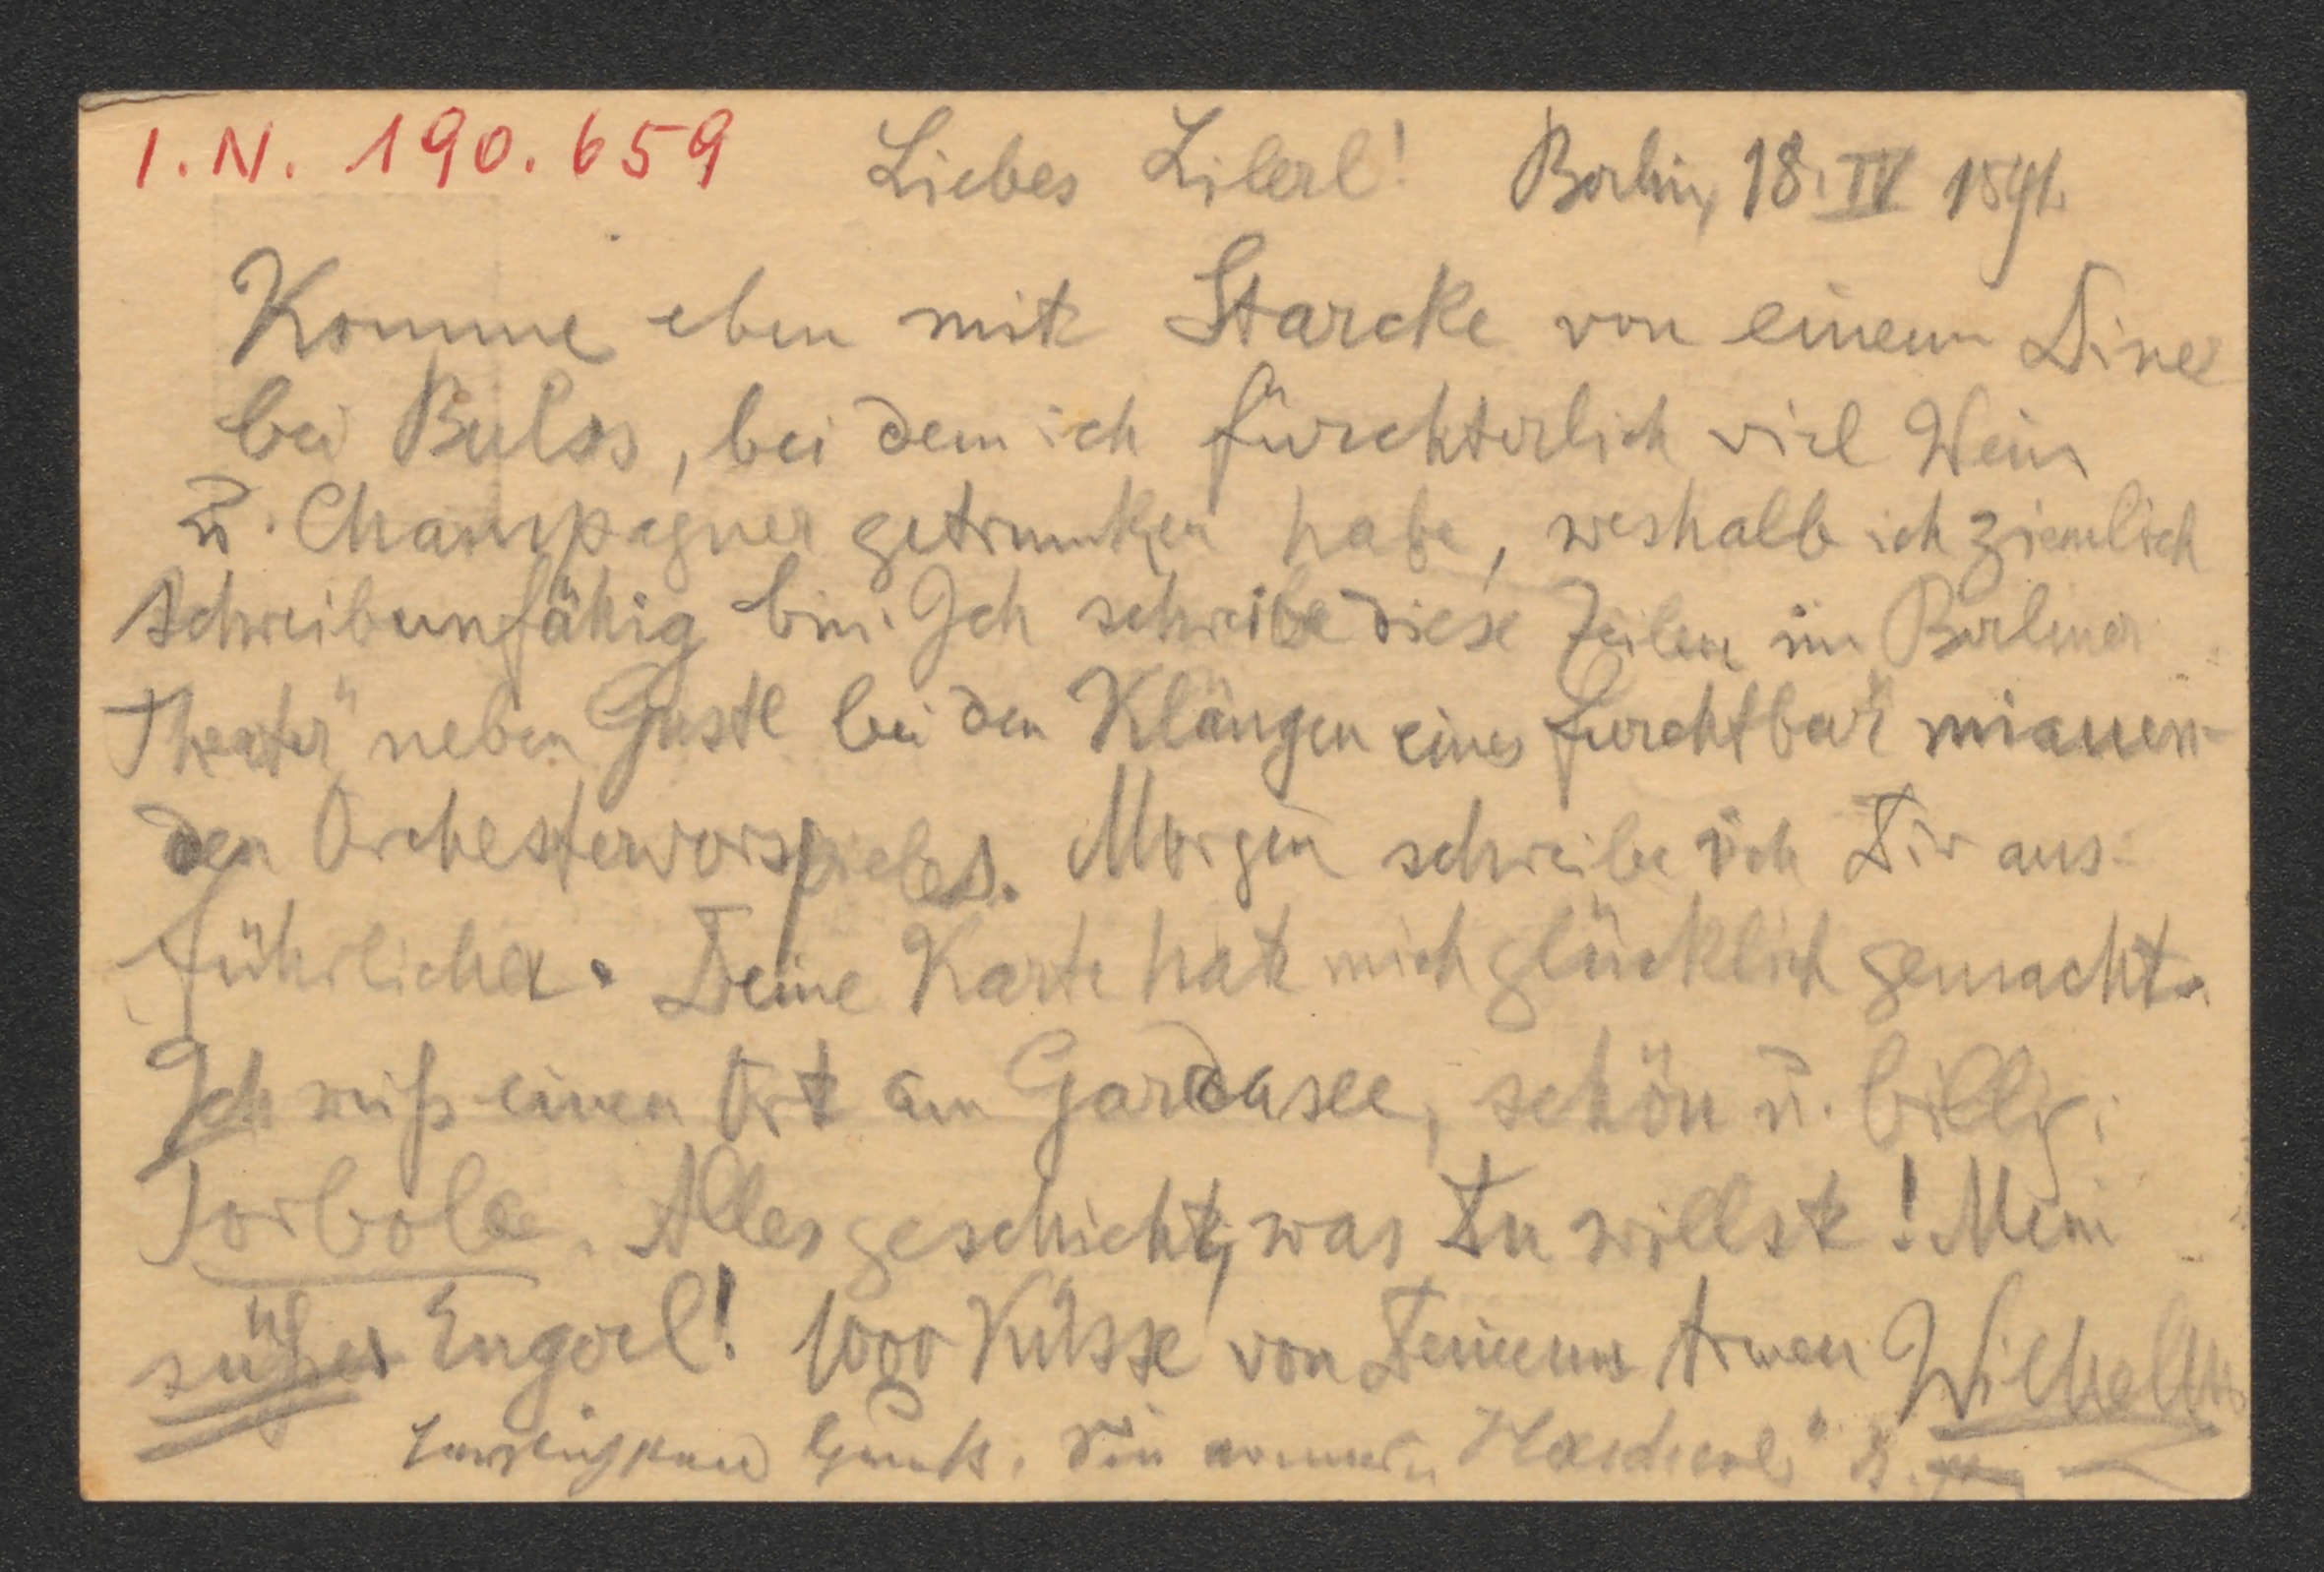 I. N. 190.659
Liebes Lilerl! Berlin, 18. IV 1891.
Komme eben mit Starcke von einem Diner
bei Bulss, bei dem ich fürchterlich viel Wein
u. Champagner getrunken habe, weshalb ich ziemlich
schreibunfähig bin. Ich schreibe diese Zeilen im Berliner
Theater" neben Gustl bei den Klängen eines furchtbar miauen-
den Orchestervorspieles. Morgen schreibe ich Dir aus-
führlicher. Deine Karte hat mich glücklich gemacht.
Ich weiß einen Ort am Gardasee, schön u. billig:
Torbole. Alles geschieht, was Du willst! Mein
süßes Engerl! 1000 Küsse von Deinem armen Wilhelm